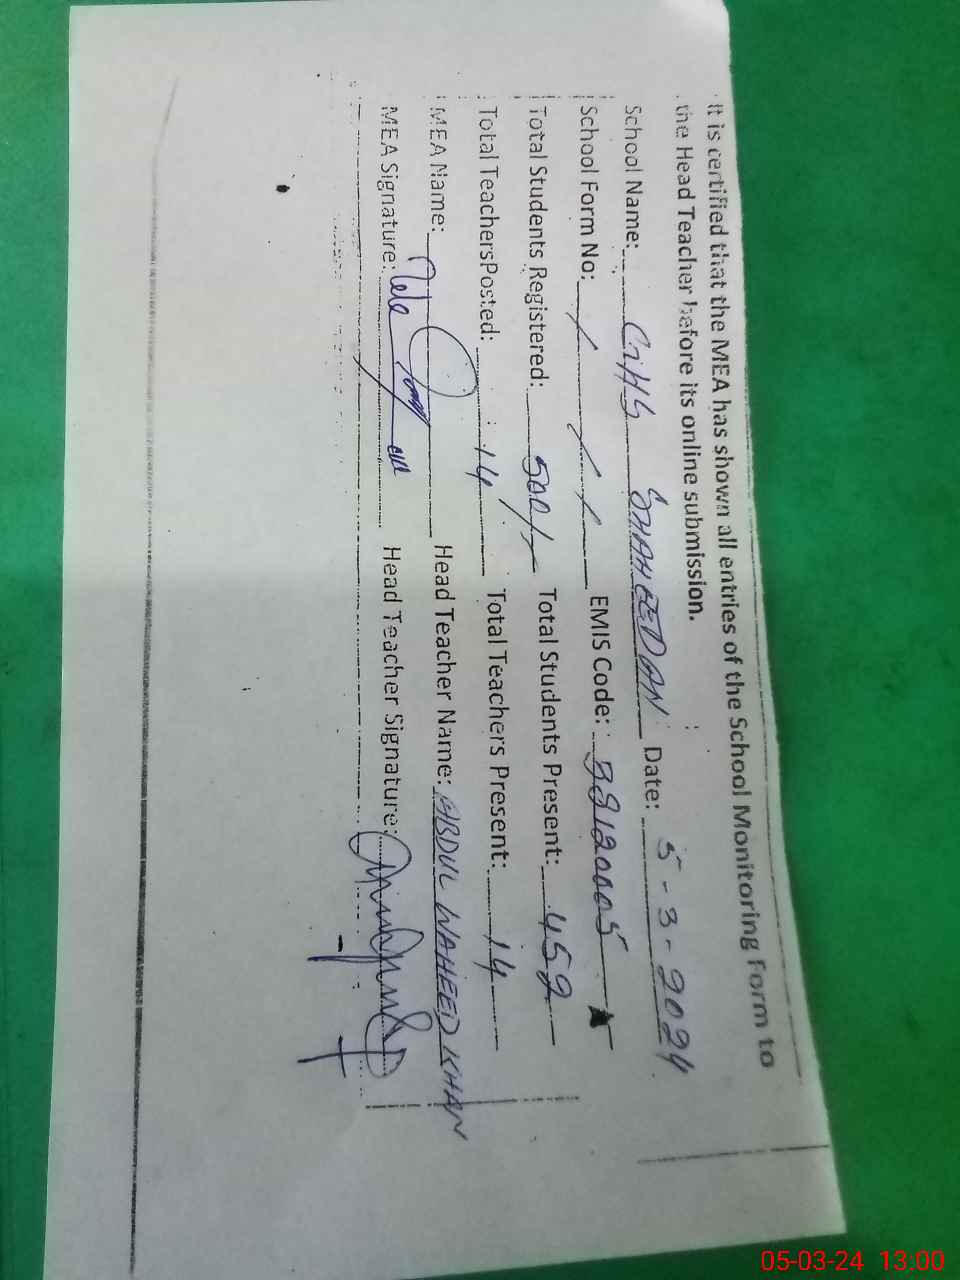 It is certified that the MEA has shown all entries of the School Monitoring Form to
the Head Teacher before its online submission.
School Name: GHS SHAHEEDAN Date: 5-3-2024
School Form No: / / / EMIS Code: 38120005
Total Students Registered: 500/- Total Students Present: 459
Total TeachersPosted: 14 Total Teachers Present: 14
MEA Name: Head Teacher Name: ABDUL WAHEED KHAN
MEA Signature: Head Teacher Signature:
05-03-24 13:00